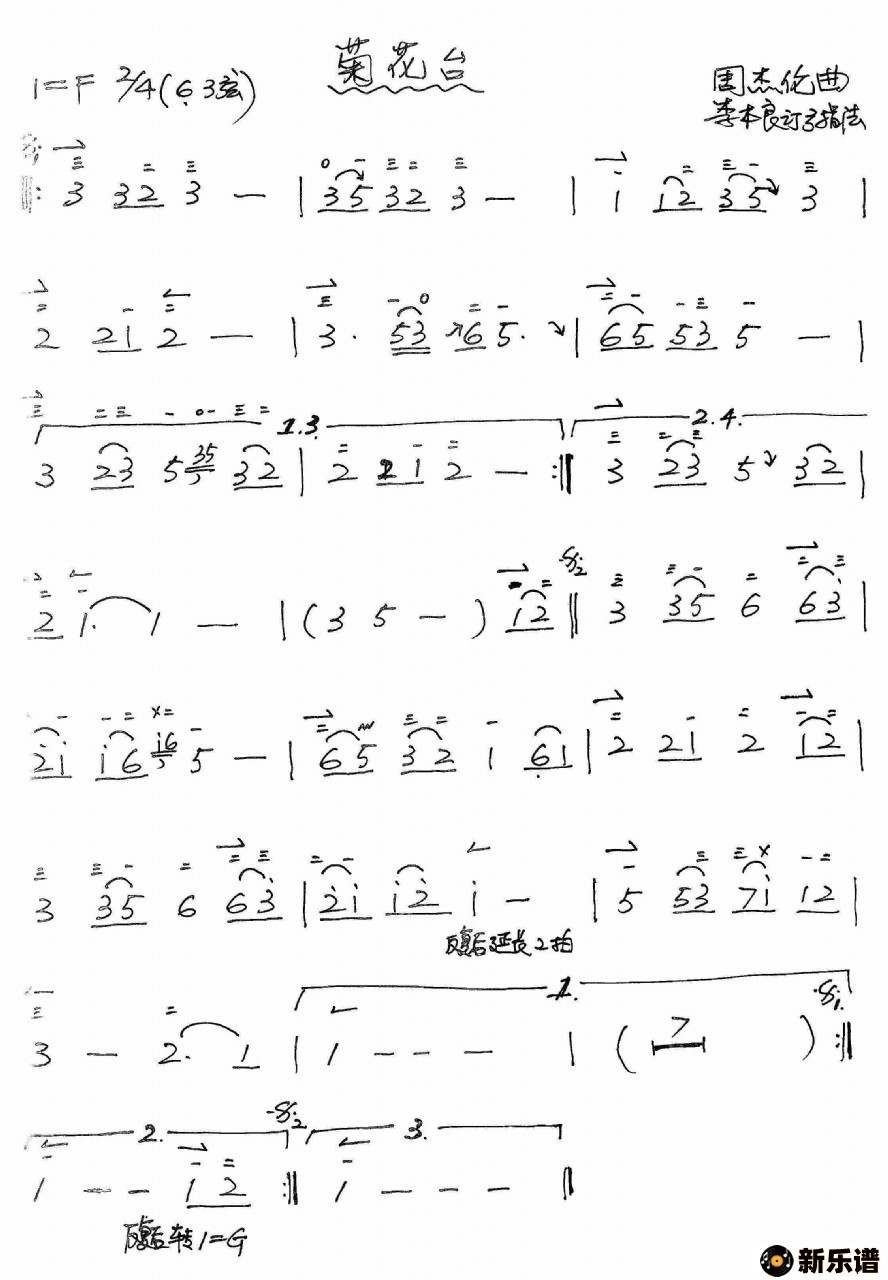 菊花台
1=F 2/4(6̣ 3弦)
周杰伦曲
李本良订弓指法
‖: 3 32 3 — | 35 32 3 — | 1 12 35 3 |
2 21 2 — | 3· 53 65· | 65 53 5 — |
1.3. 2.4.
3 23 5 35 32 | 2 21 2 — :‖ 3 23 5 32 |
2 1· 1 — | (3 5 —) 12 ‖ 3 35 6 63̇ |
2̇1̇ 1̇6 1̇6 5 — | 65 32 1 6̣1 | 2 21 2 12 |
3 35 6 63̇ | 2̇1̇ 1̇2̇ 1̇ — | 5 53 71̇ 12 |
反复后延长2拍
1.
3 — 2· 1 | 1 - - - | ( 7 ) :‖
2. 3.
1 - - 12 :‖ 1 - - - ‖
反复后转1=G
新乐谱